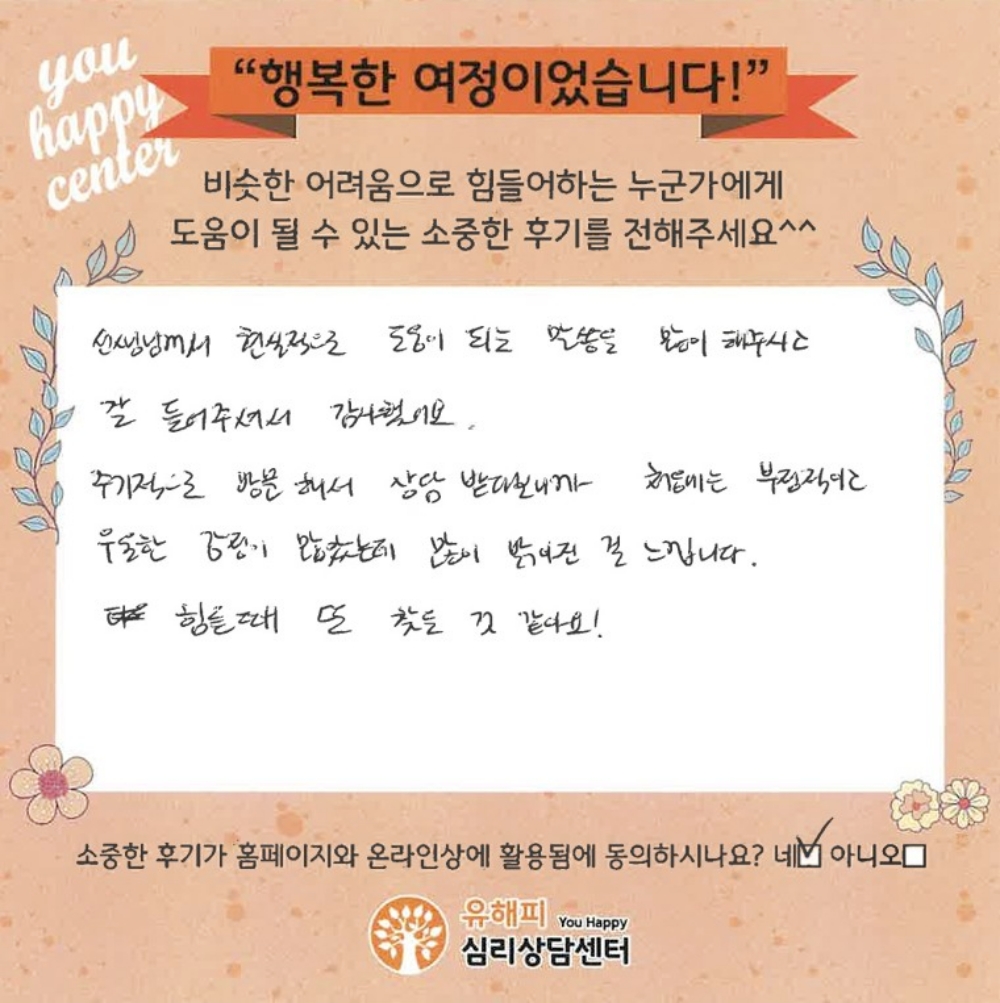 you
happy
center
“행복한 여정이었습니다!”
비슷한 어려움으로 힘들어하는 누군가에게
도움이 될 수 있는 소중한 후기를 전해주세요^^
선생님께서 현실적으로 도움이 되는 말씀을 많이 해주시고
잘 들어주셔서 감사했어요.
주기적으로 방문해서 상담 받다보니까 처음에는 부정적이고
우울한 감정이 많았는데 많이 밝아진 걸 느낍니다.
힘들때 또 찾을 것 같아요!
소중한 후기가 홈페이지와 온라인상에 활용됨에 동의하시나요? 네☑ 아니오☐
유해피 You Happy
심리상담센터